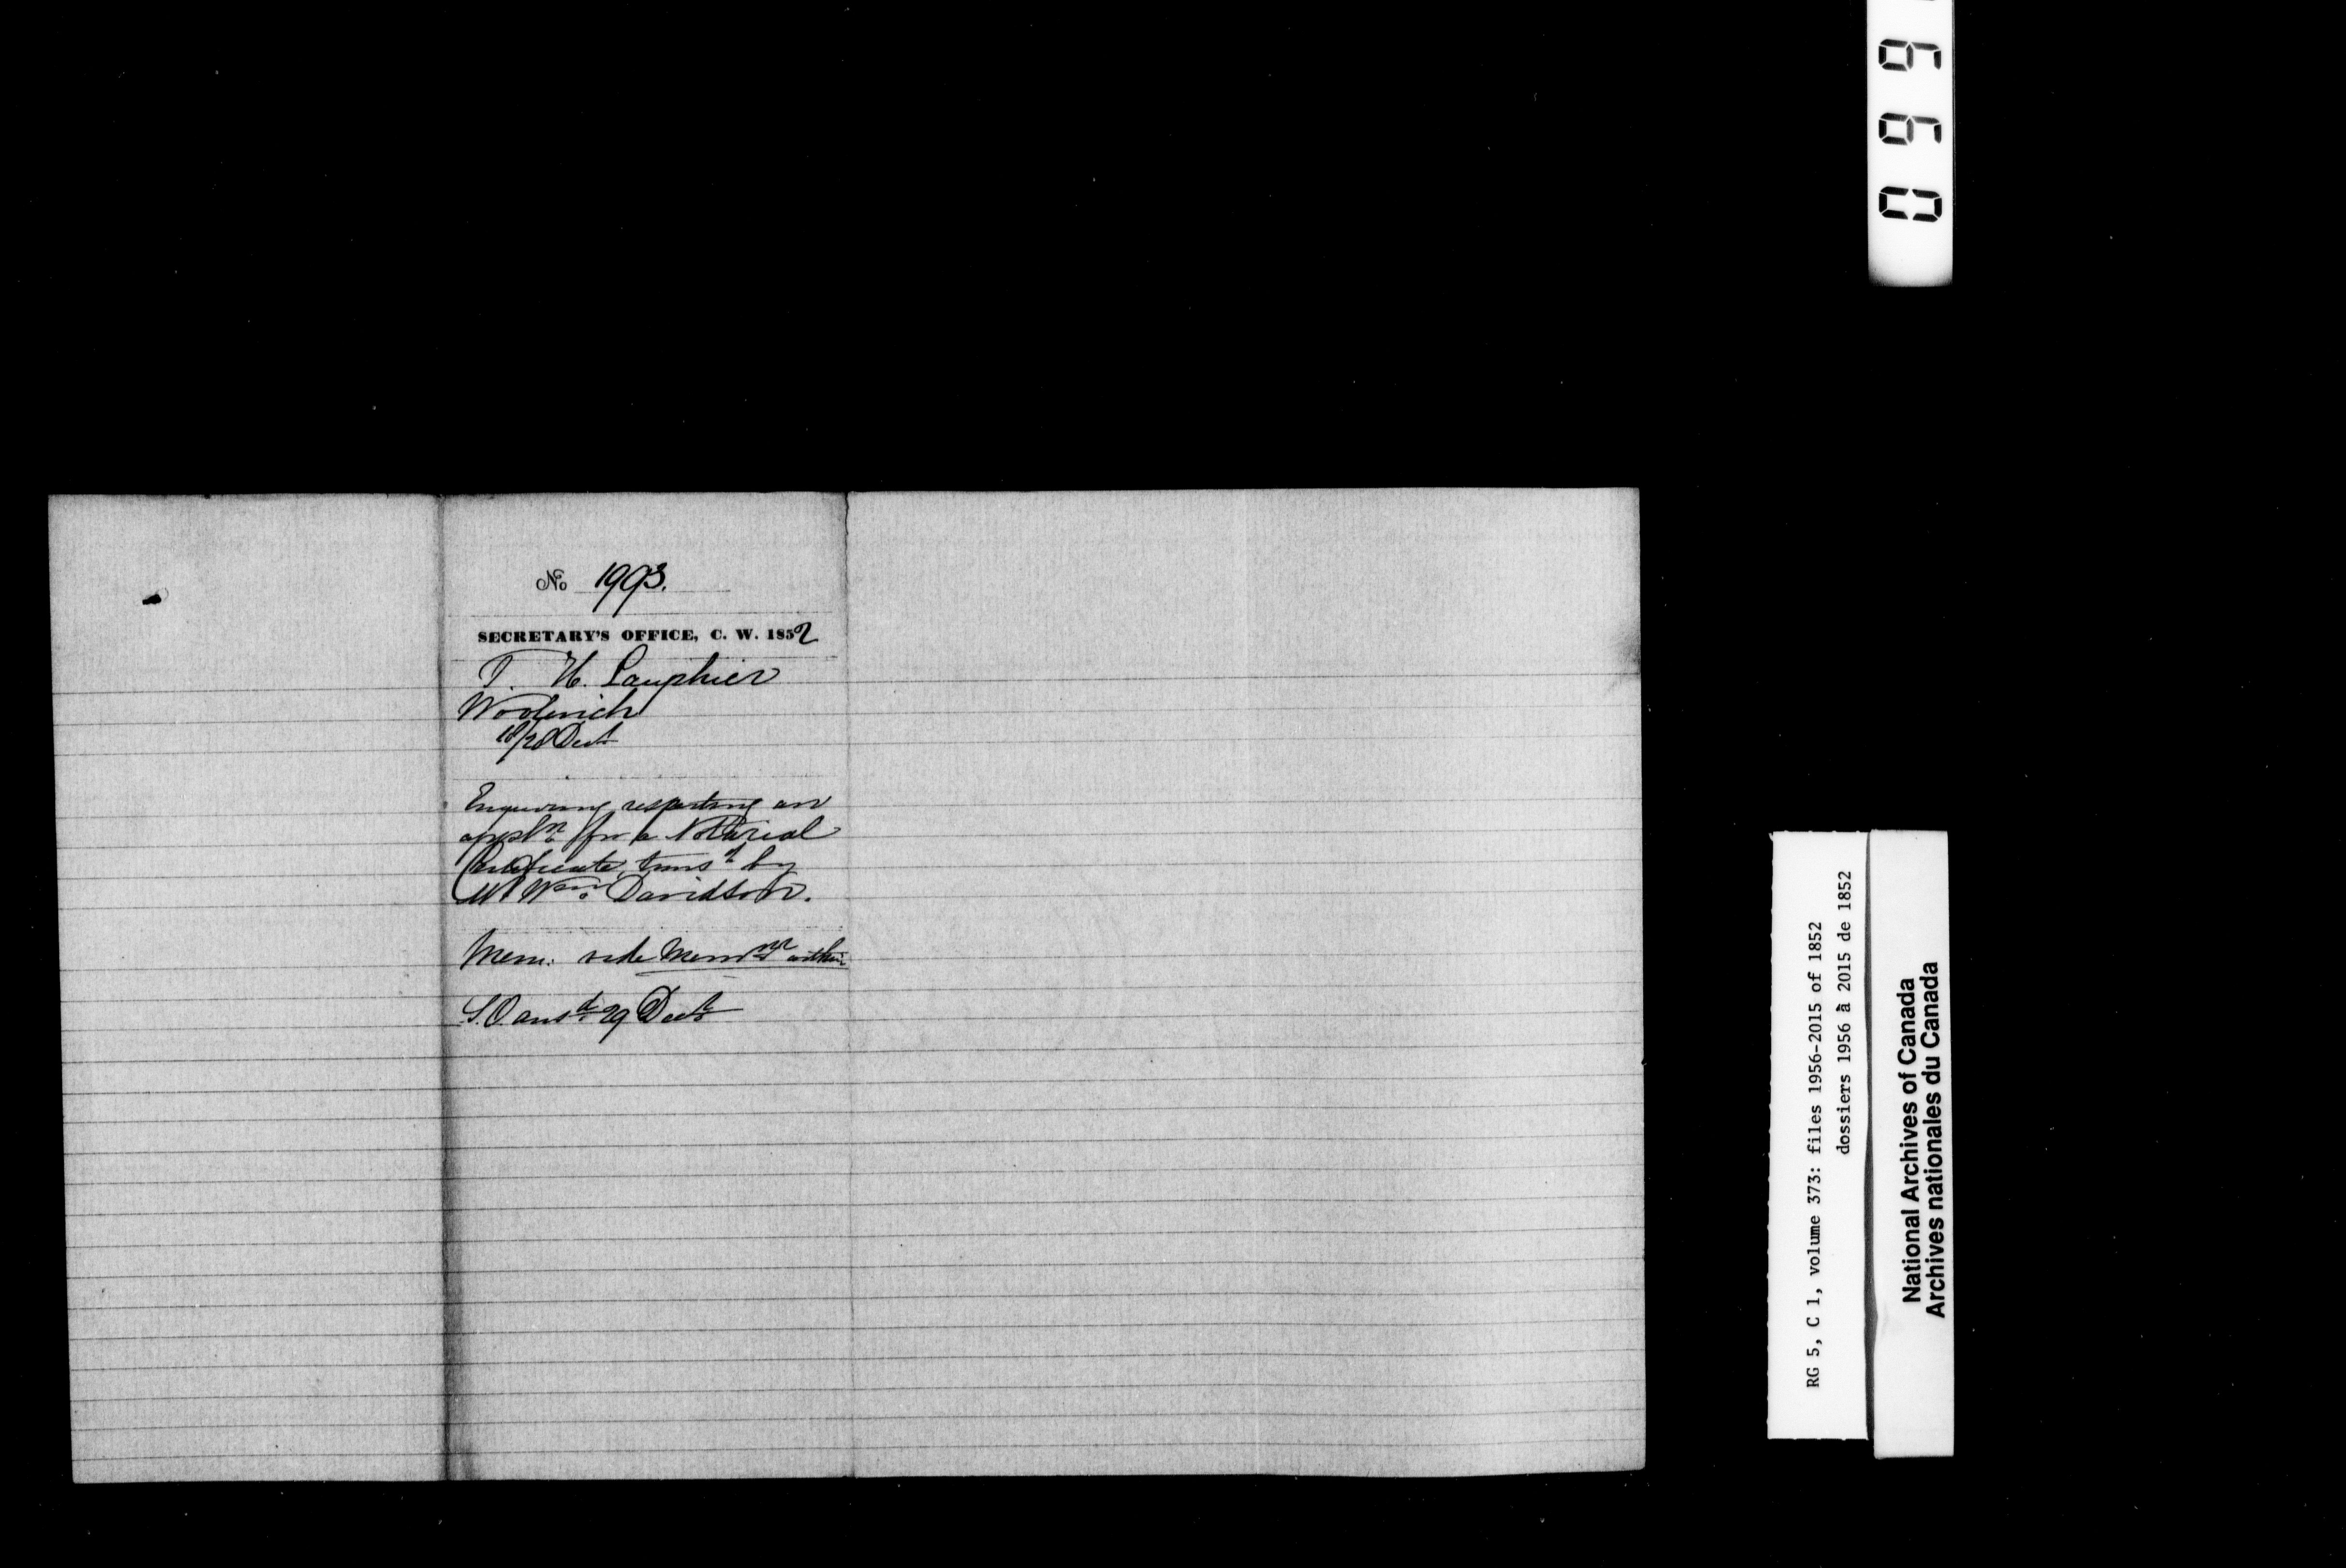 No 1993.
SECRETARY'S OFFICE, C. W. 1852
T. H. Lauphier
Woolwich
18/28 Decr
Enquiring respecting an
appln for a Notarial
Certificate transd by
Mr Wm Davidson.
Mem: vide Memm within
S.O. ansd 29 Decr
0 9 9
RG 5, C 1, volume 373: files 1956-2015 of 1852
dossiers 1956 à 2015 de 1852
National Archives of Canada
Archives nationales du Canada